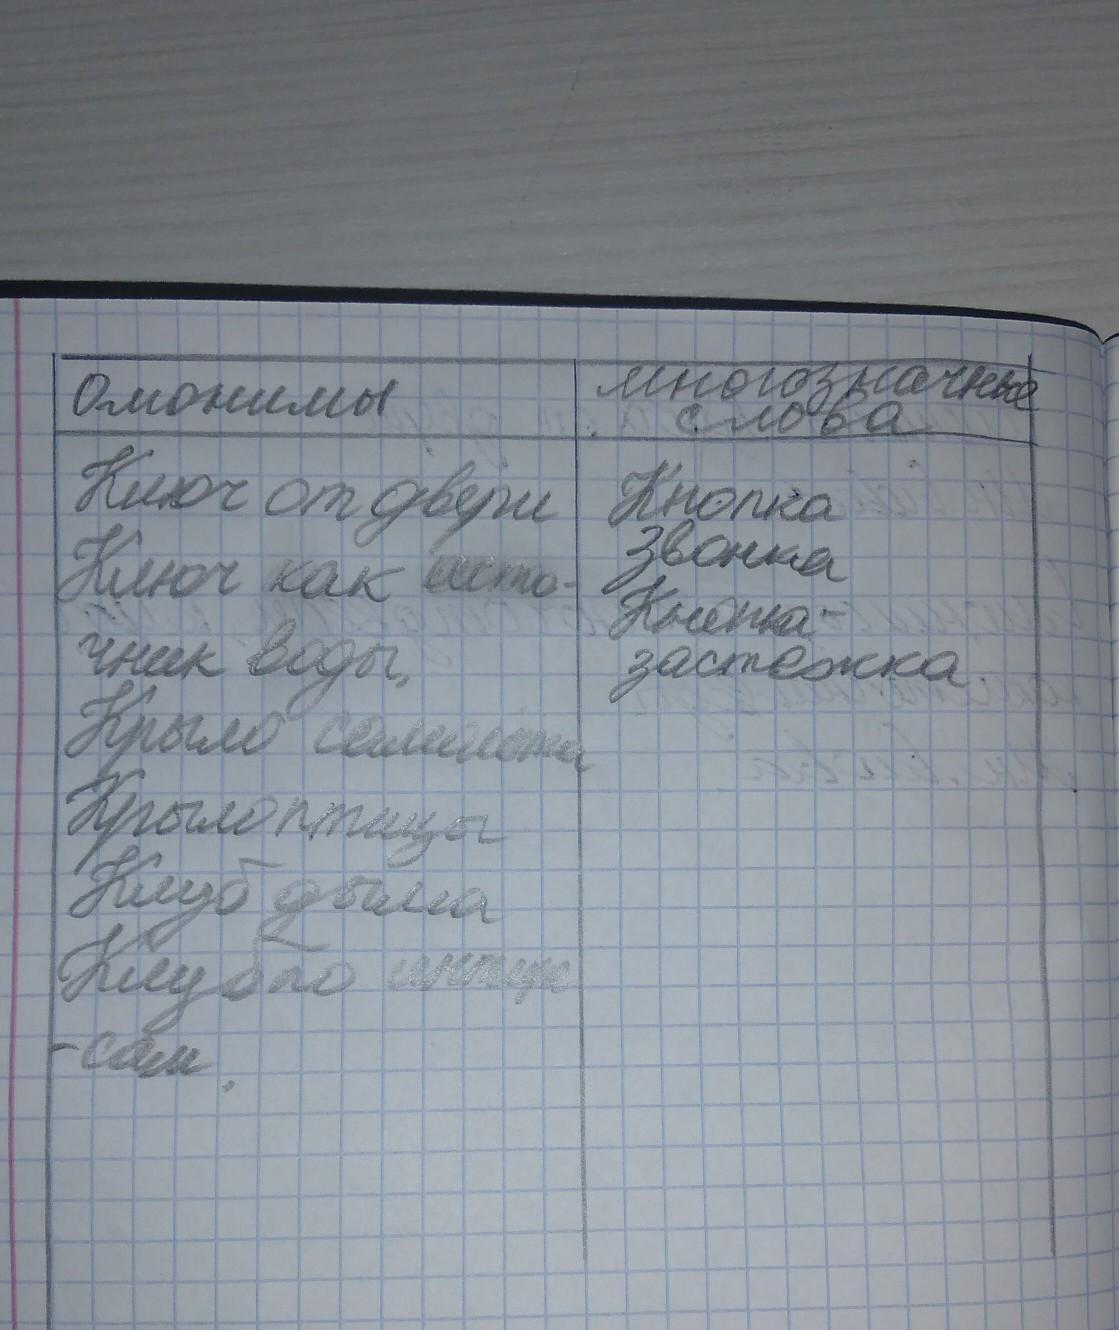 Омонимы
многозначные
слова
Ключ от двери
Ключ как исто-
чник воды.
Крыло самолёта
Крыло птицы
Клуб дыма
Клуб по интере
-сам.
Кнопка
звонка
Кнопка-
застёжка